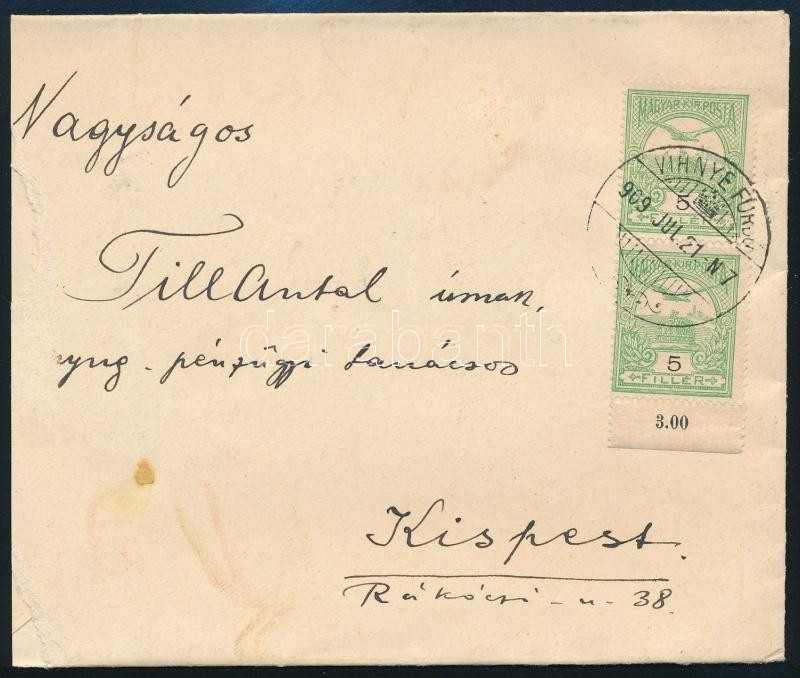 Nagyságos
Till Antal úrnak,
nyug. pénzügyi tanácsos
Kispest.
Rákóczi-u. 38.
MAGYAR·KIR·POSTA
5
FILLÉR
VIHNYE FÜRDŐ
909 JUL. 21-N 7
MAGYAR·KIR·POSTA
5
FILLÉR
3.00
darabanth